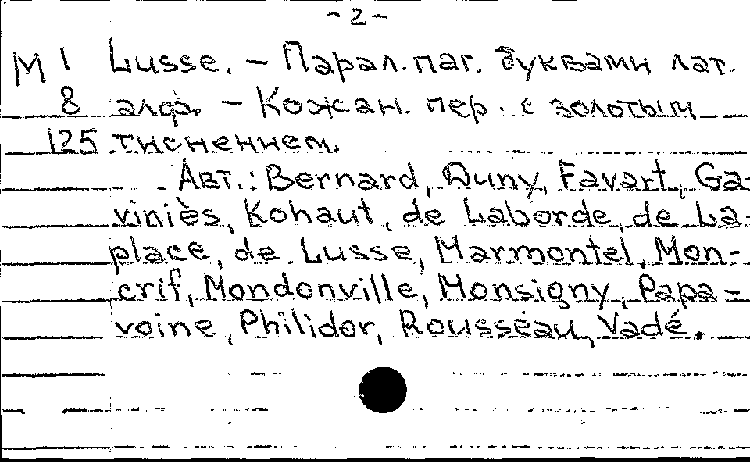 -2-
М 1 Lusse. – Парал. паг. буквами лат.
8 алф. – Кожан. пер. с золотым
125 тиснением.
Авт.: Bernard, Duny, Favart, Ga-
viniès, Kohaut, de Laborde, de La-
place, de Lusse, Marmontel, Mon-
crif, Mondonville, Monsigny, Papa-
voine, Philidor, Rousseau, Vadé.